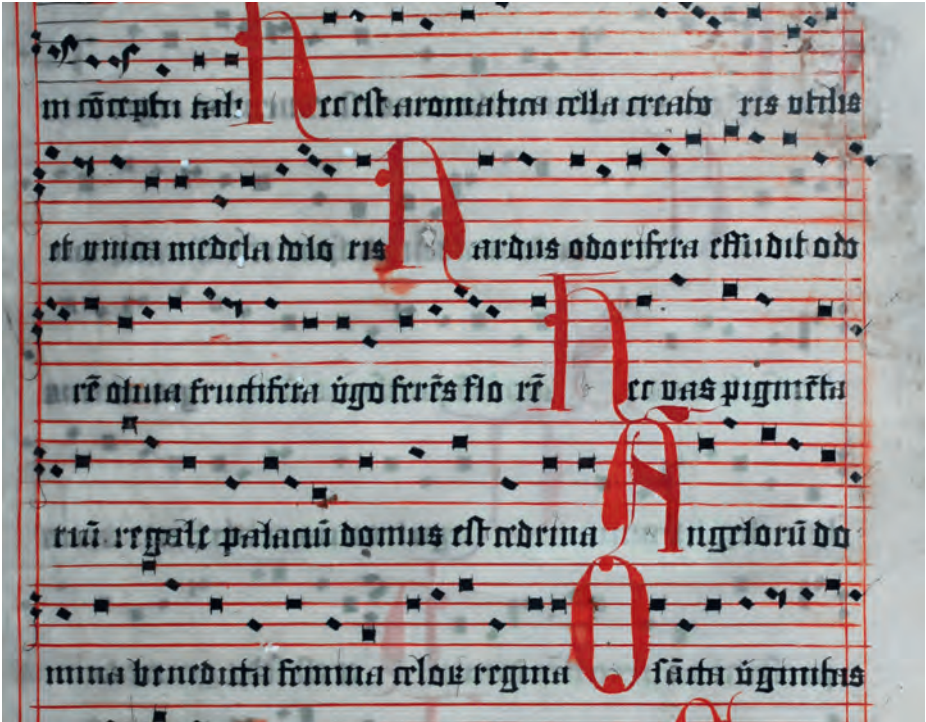 in cōceptu tali Hec est aromatica cella creato ris utilis
et unica medela dolo ris Nardus odorifera effudit odo
rē oliua fructifera ůgo ferēs flo rē Hec uas pigmēta
riū regale palaciū domus est cedrina Angelorū do
mina benedicta femina celoꝝ regina O sācta ůginitas